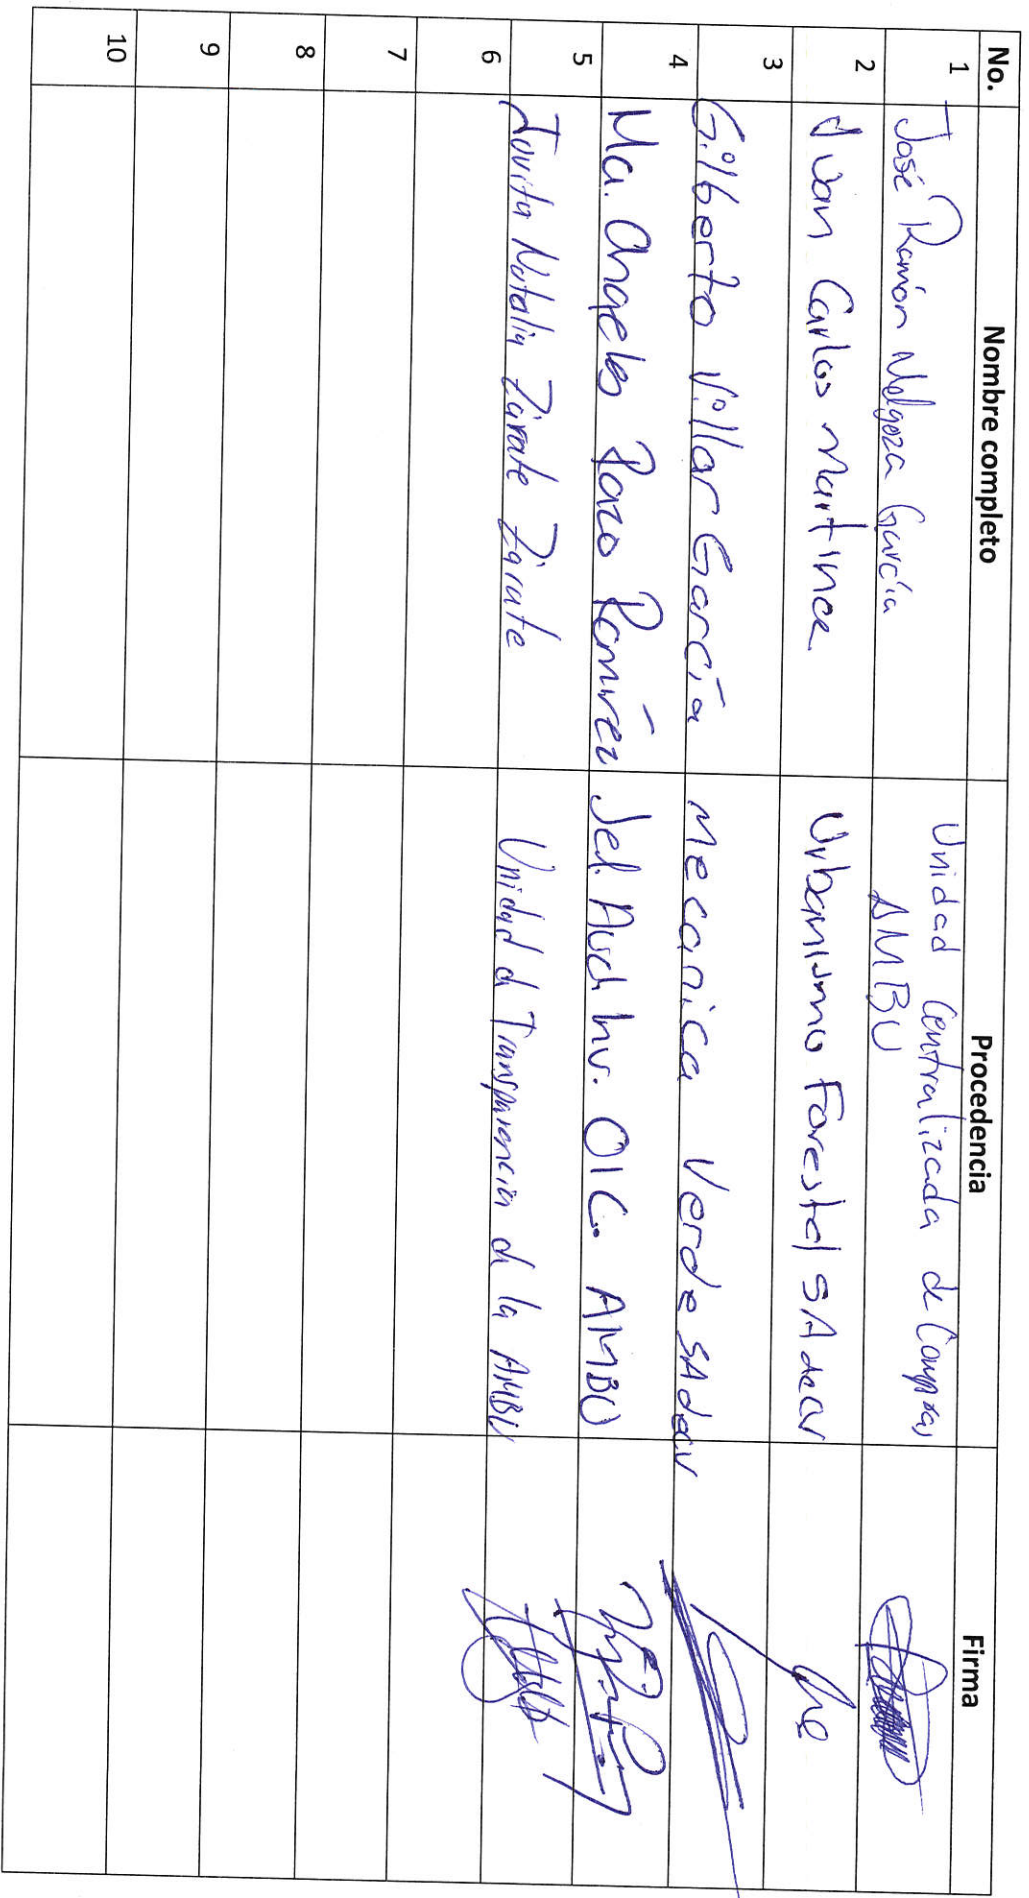 No. Nombre completo Procedencia Firma
1 José Ramón Melgoza García Unidad Centralizada de Compras
AMBU
2 Juan Carlos Martínez Urbanismo Forestal SA de CV
3 Gilberto Villar García Mecanica Verde SA de CV
4 Ma. Angeles Razo Ramírez Jef. Aud. Inv. OIC. AMBU
5 Jovita Natalia Zárate Zárate Unidad de Transparencia de la AMBU
6
7
8
9
10